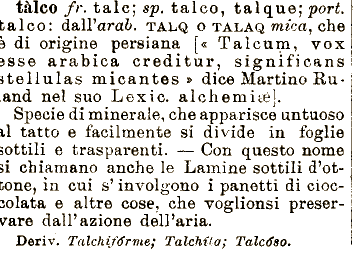 tàlco fr. talc; sp. talco, talque; port.
talco: dall'arab. TALQ o TALAQ mica, che
è di origine persiana [« Talcum, vox
esse arabica creditur, significans
stellulas micantes » dice Martino Ru-
land nel suo Lexic. alchemiæ].
Specie di minerale, che apparisce untuoso
al tatto e facilmente si divide in foglie
sottili e trasparenti. — Con questo nome
si chiamano anche le Lamine sottili d'ot-
tone, in cui s'involgono i panetti di cioc-
colata e altre cose, che voglionsi preser-
vare dall'azione dell'aria.
Deriv. Talchifórme; Talchíto; Talcóso.